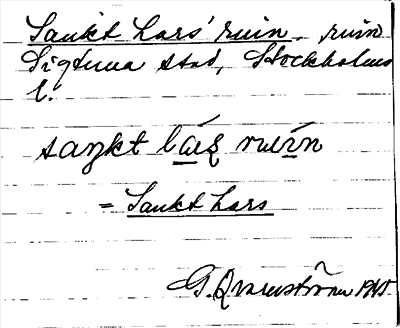 Sankt Lars' ruin, ruin
Sigtuna stad, Stockholms
l.
saŋkt lás ruín
= Sankt Lars
G. Qvarnström 1945